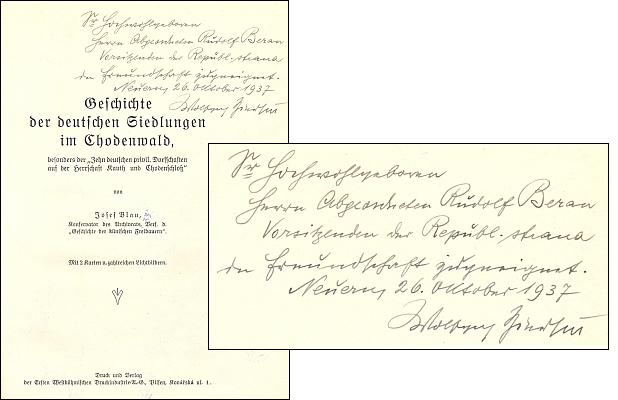 Sr Hochwohlgeboren
Herrn Abgeordneten Rudolf Beran
Vorsitzenden der Republ. strana
in Freundschaft zugeeignet.
Neuern, 26. Oktober 1937
Wolfgang
Geschichte
der deutschen Siedlungen
im Chodenwald,
besonders der „Zehn deutschen privil. Dorfschaften
auf der Herrschaft Kauth und Chodenschloß“
von
Josef Blau,
Konservator des Archivrats, Verf. d.
„Geschichte der künischen Freibauern“.
Mit 2 Karten u. zahlreichen Lichtbildern.
Druck und Verlag
der Ersten Westböhmischen Druckindustrie A.-G., Pilsen, Kovářská ul. 1.
Sr Hochwohlgeboren
Herrn Abgeordneten Rudolf Beran
Vorsitzenden der Republ. strana
in Freundschaft zugeeignet.
Neuern, 26. Oktober 1937
Wolfgang